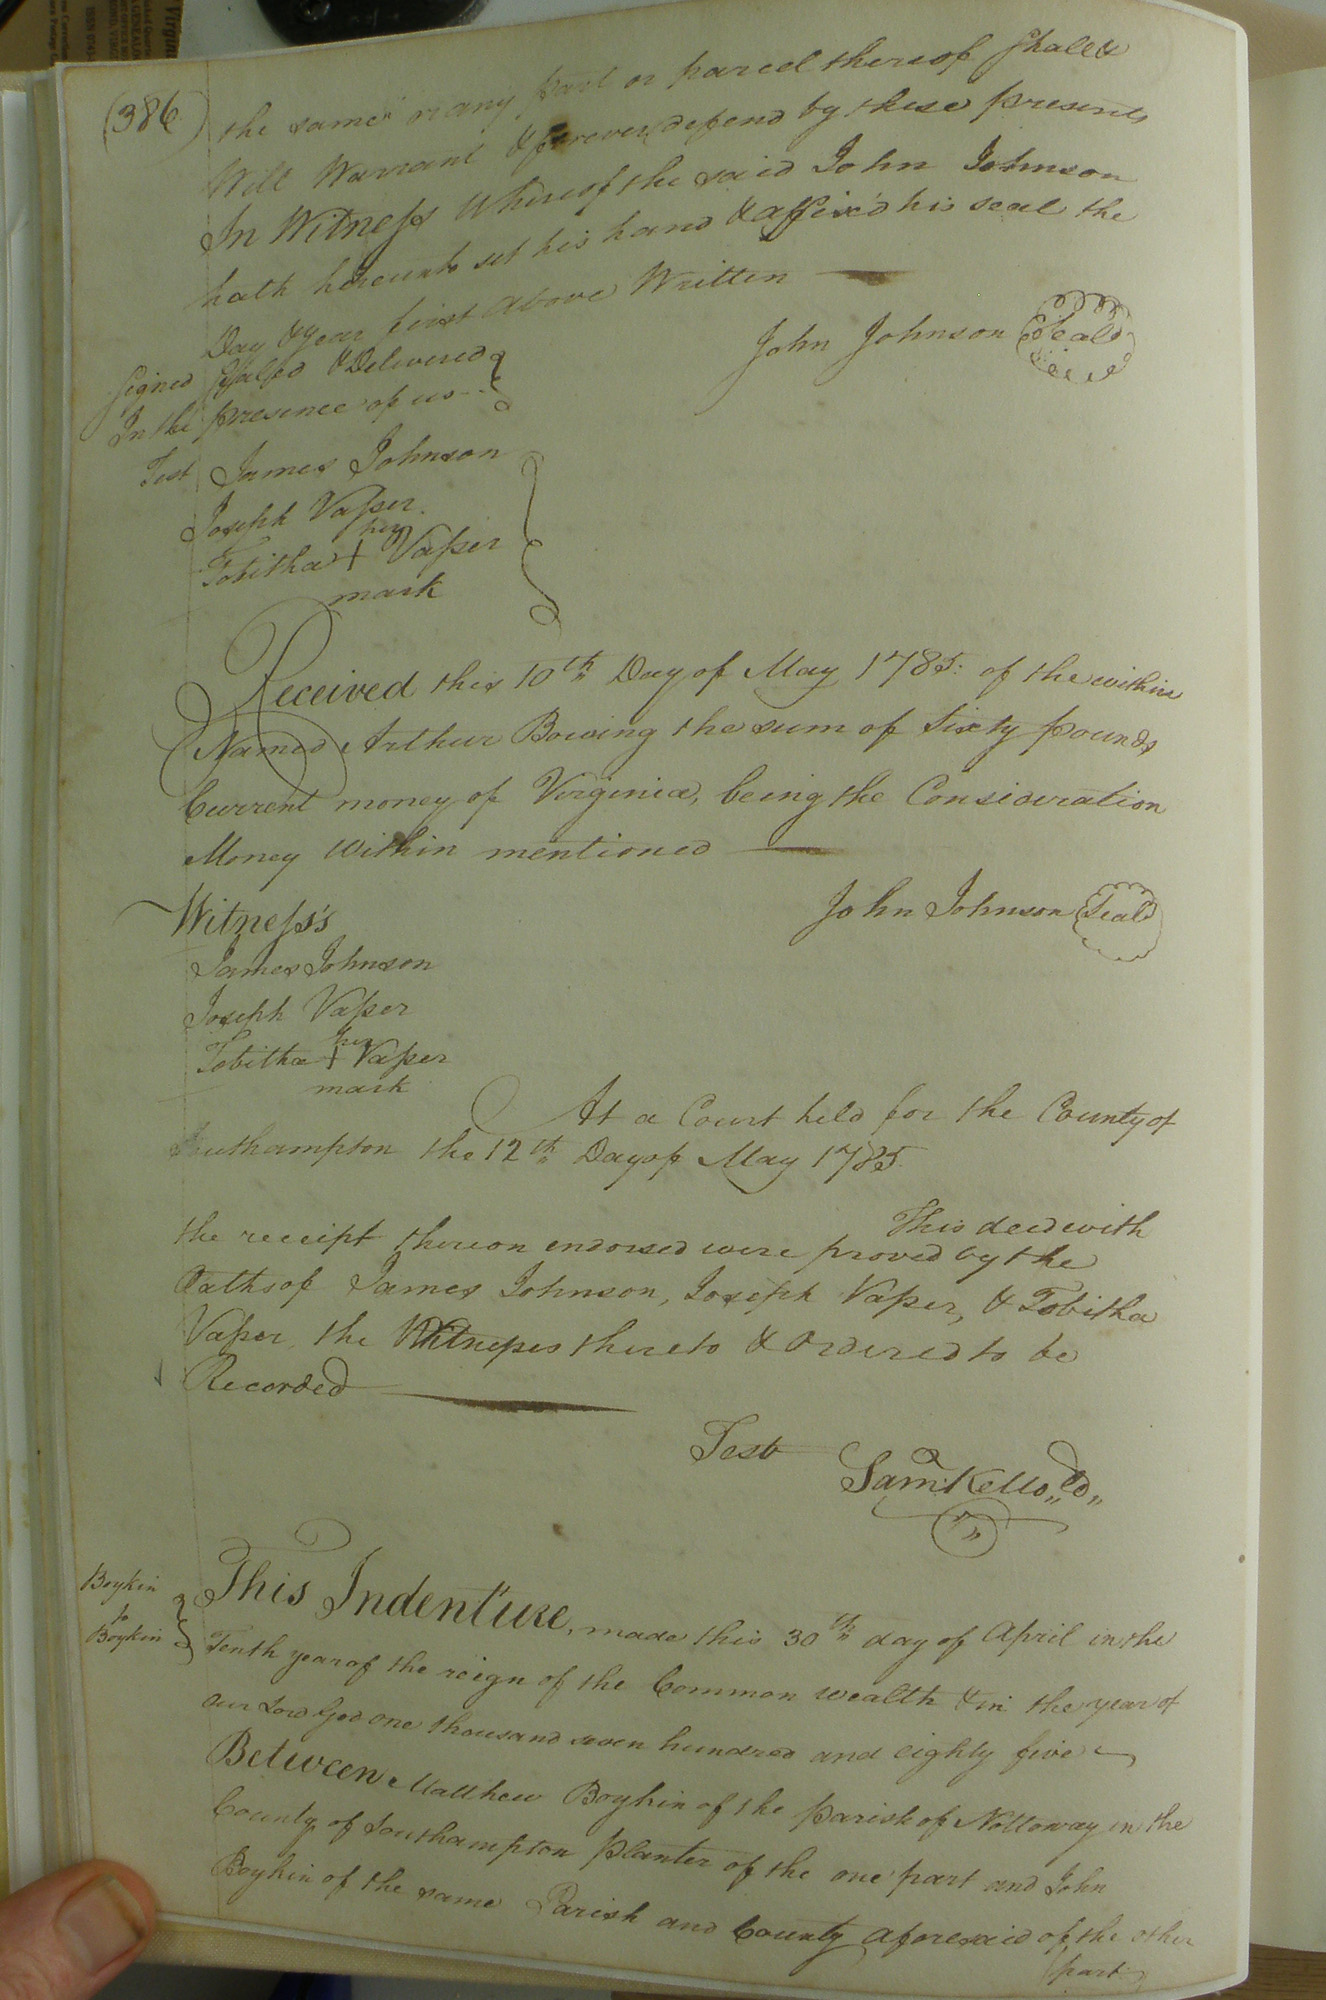 (386)
the same or any part or parcel thereof shall &
Will Warrant & forever defend by these presents
In Witness Whereof the said John Johnson
hath hereunto set his hand & affix'd his seal the
Day & year first above Written
John Johnson Seal
Signed Sealed & Delivered
In the presence of us
Test James Johnson
Joseph Vasser
her
Tobitha + Vasser
mark
Received this 10th Day of May 1785. of the within
Named Arthur Bowing the sum of Sixty pounds
Current money of Virginia, being the Consideration
Money Within mentioned
John Johnson Seal
Witness's
James Johnson
Joseph Vasser
her
Tobitha + Vasser
mark
At a Court held for the County of
Southampton the 12th Day of May 1785.
This deed with
the receipt thereon endorsed were proved by the
Oaths of James Johnson, Joseph Vasser, & Tobitha
Vasser, the Witnesses thereto & Ordered to be
Recorded
Test
Saml. Kello,, Cl,,
Boykin
to
Boykin
This Indenture, made this 30th day of April in the
Tenth year of the reign of the Common wealth & in the year of
our Lord God one thousand seven hundred and eighty five
Between Matthew Boykin of the parish of Nottoway in the
County of Southampton planter of the one part and John
Boykin of the same Parish and County aforesaid of the other
part